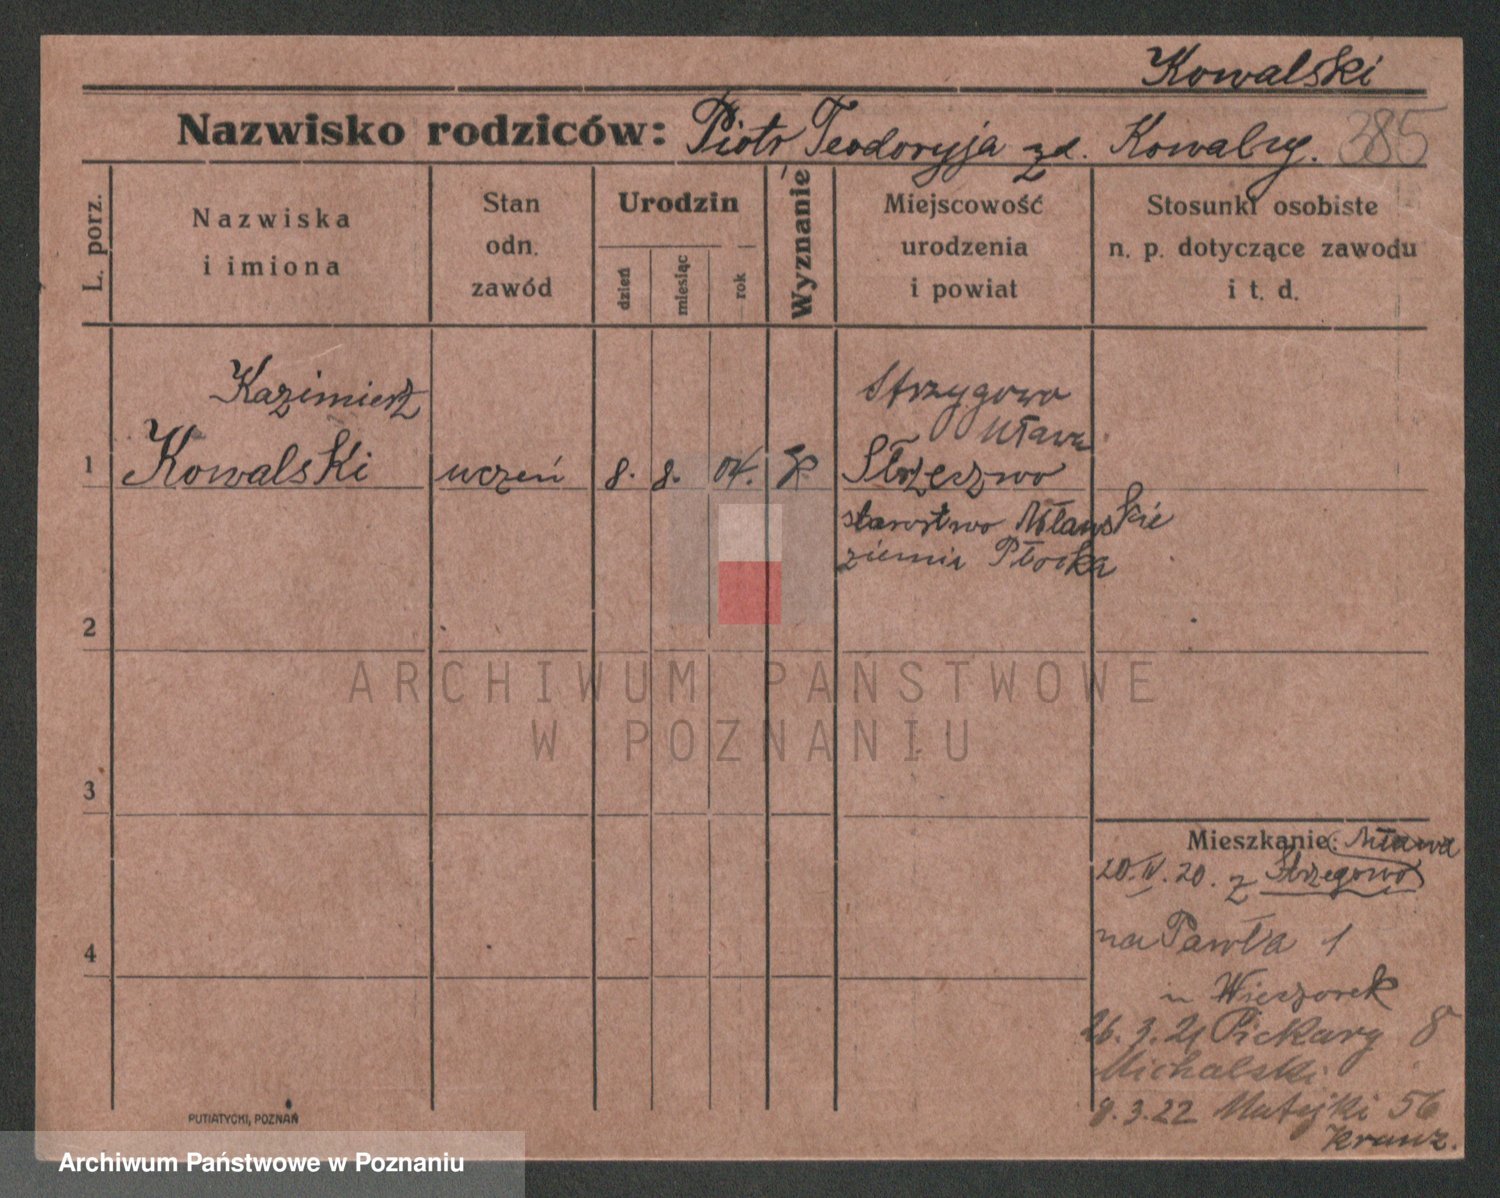 Kowalski
Nazwisko rodziców: Piotr Teodoryja zd. Kowalsy. 385
L. porz.
Nazwiska
i imiona
Stan
odn.
zawód
Urodzin
dzień
miesiąc
rok
Wyznanie
Miejscowość
urodzenia
i powiat
Stosunki osobiste
n. p. dotyczące zawodu
i t. d.
Kazimierz
Strzygowo
Mława
1 Kowalski uczeń 8. 8. 04.
starostwo Mławskie
ziemia Płocka
2
ARCHIWUM PAŃSTWOWE
W POZNANIU
3
Mieszkanie: Mława
20.IV.20. z Strzegowo
na Pawła 1
4
u Wieczorek
26.3.21 Piekary 8
Michalski
8.3.22 Matejki 56
PUTIATYCKI, POZNAŃ
Archiwum Państwowe w Poznaniu